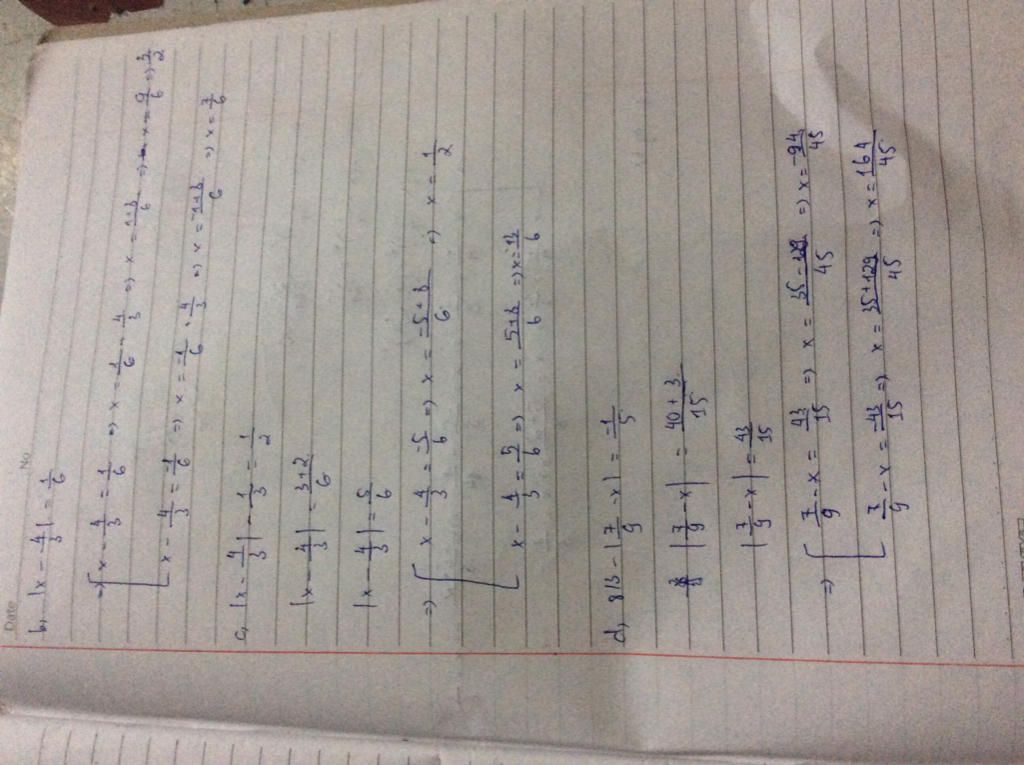 No
Date
b, |x - 4/3| = 1/6
=> [ x - 4/3 = 1/6 => x = 1/6 + 4/3 => x = 1+8/6 => x = 9/6 => 3/2
x - 4/3 = -1/6 => x = -1/6 + 4/3 => x = -1+8/6 => x = 7/6
c, |x - 4/3| - 1/3 = 1/2
|x - 4/3| = 3+2/6
|x - 4/3| = 5/6
=> [ x - 4/3 = -5/6 => x = -5+8/6 => x = 1/2
x - 4/3 = 5/6 => x = 5+8/6 => x = 13/6
d, 8/3 - |7/9 - x| = -1/5
|7/9 - x| = 40+3/15
|7/9 - x| = 43/15
=> [ 7/9 - x = 43/15 => x = 35-129/45 => x = -94/45
7/9 - x = -43/15 => x = 35+129/45 => x = 164/45